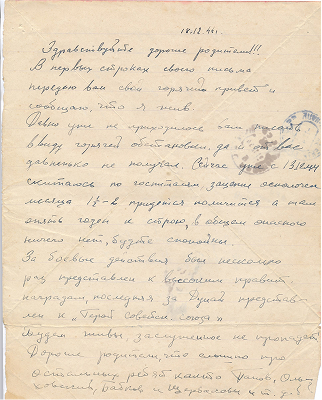 18.12.44 г.
Здравствуйте дорогие родители!!!
В первых строках своего письма
передаю вам свой горячий привет и
сообщаю, что я жив.
Давно уже не приходилось вам писать
ввиду горячей обстановки, да и от вас
давненько не получал. Сейчас уже с
скитаюсь по госпиталям
месяца придется полечится а там
опять годен к строю, в общем опасного
ничего нет, будьте спокойны.
За боевые действия был несколько
раз представлен к правит.
наградам, последняя за Дунай представ-
лен к „Герой Советск. Союза"
Будем живы, заслуженное не пропадет
Дорогие родители, что слышно про
остальных ребят как-то Попов,
Бабков и Щербасов и т. д.